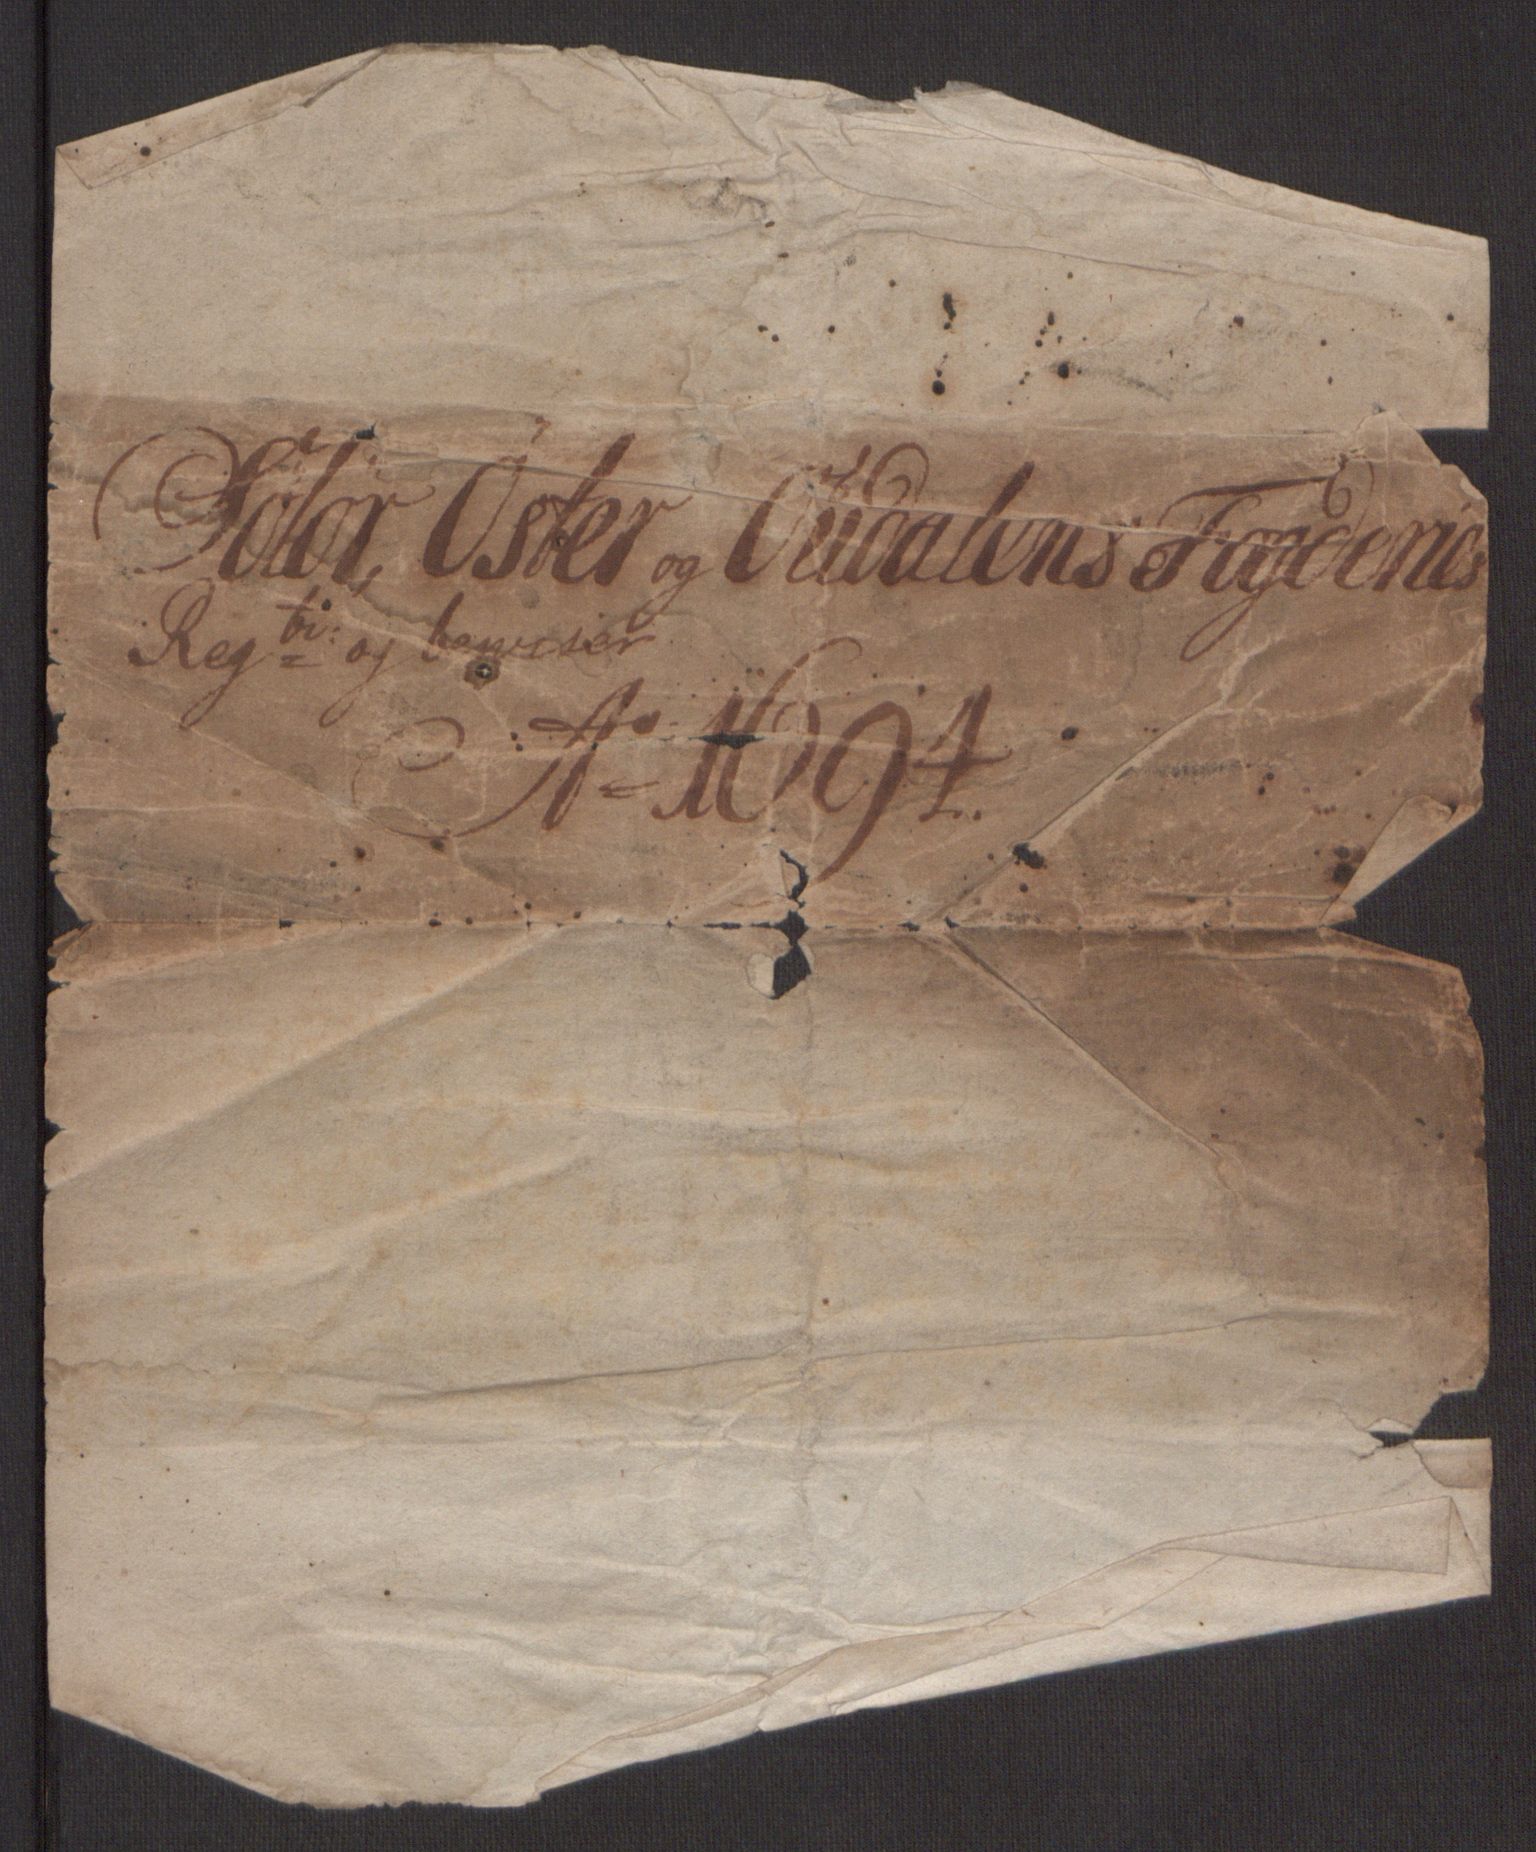 Solør, Øster og Oudalens Fogderies
Reg:tb: og beviser
A:o 1694.